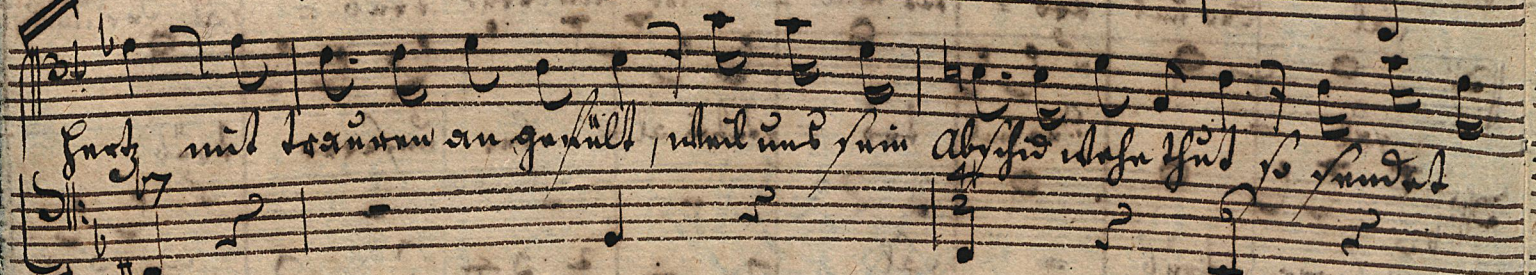 hertz mit trauren an gefült, weil uns sein Abschid wehe thut so sendet